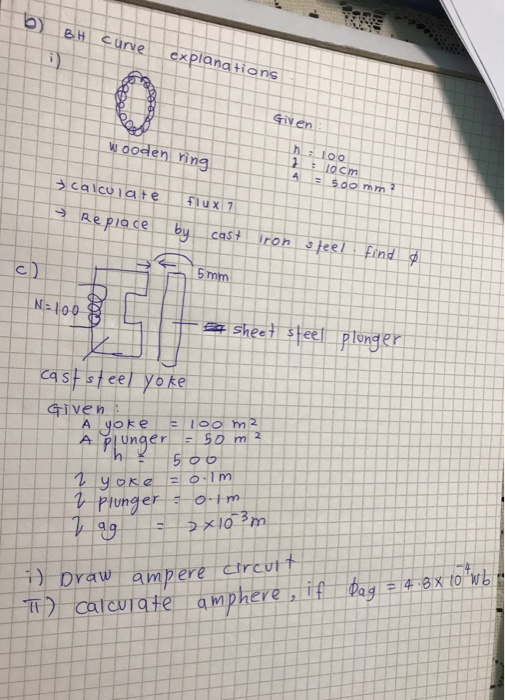 b) BH curve explanations
i)
Given:
n = 100
l = 10cm
A = 500 mm²
wooden ring
→ calculate flux?
→ Replace by cast iron steel. find φ
c)
5mm
N=100
sheet steel plunger
cast steel yoke
Given:
A yoke = 100 m²
A plunger = 50 m²
n = 500
l yoke = 0.1m
l plunger = 0.1m
l ag = 2×10⁻³m
i) Draw ampere circuit
ii) calculate amphere, if φag = 4.8×10⁻⁴wb